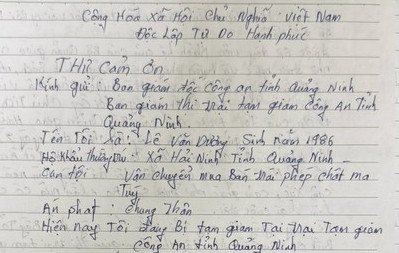 Cộng Hóa Xã Hội Chủ Nghĩa Việt Nam
Độc Lập Tự Do Hạnh phúc
THƯ CẢM ƠN
Kính gửi : Ban giám đốc công an tỉnh Quảng Ninh
Ban giám thị trại tạm giam Công An Tỉnh
Quảng Ninh.
Tên Tôi là : Lê Văn Dưỡng Sinh năm 1986
Hộ khẩu Thường Trú : Xã Hải Ninh Tỉnh Quảng Ninh -
Can tội Vận chuyển mua Bán trái phép chất ma
Túy
Án phạt : Chung Thân
Hiện nay Tôi đang Bị tạm giam Tại trại Tạm giam
Công An tỉnh Quảng Ninh